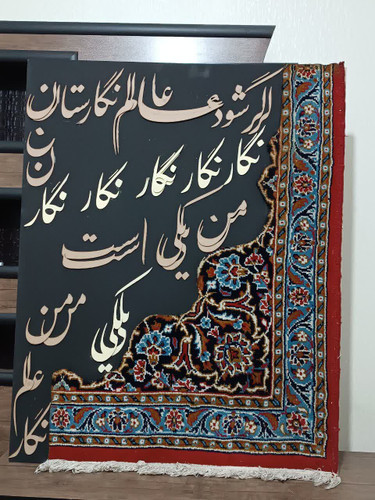 اگر شود عالم نگارستان
ن ن
نگار نگار نگار نگار نگار
من یکی است
من من
یکی
عالم
نگار